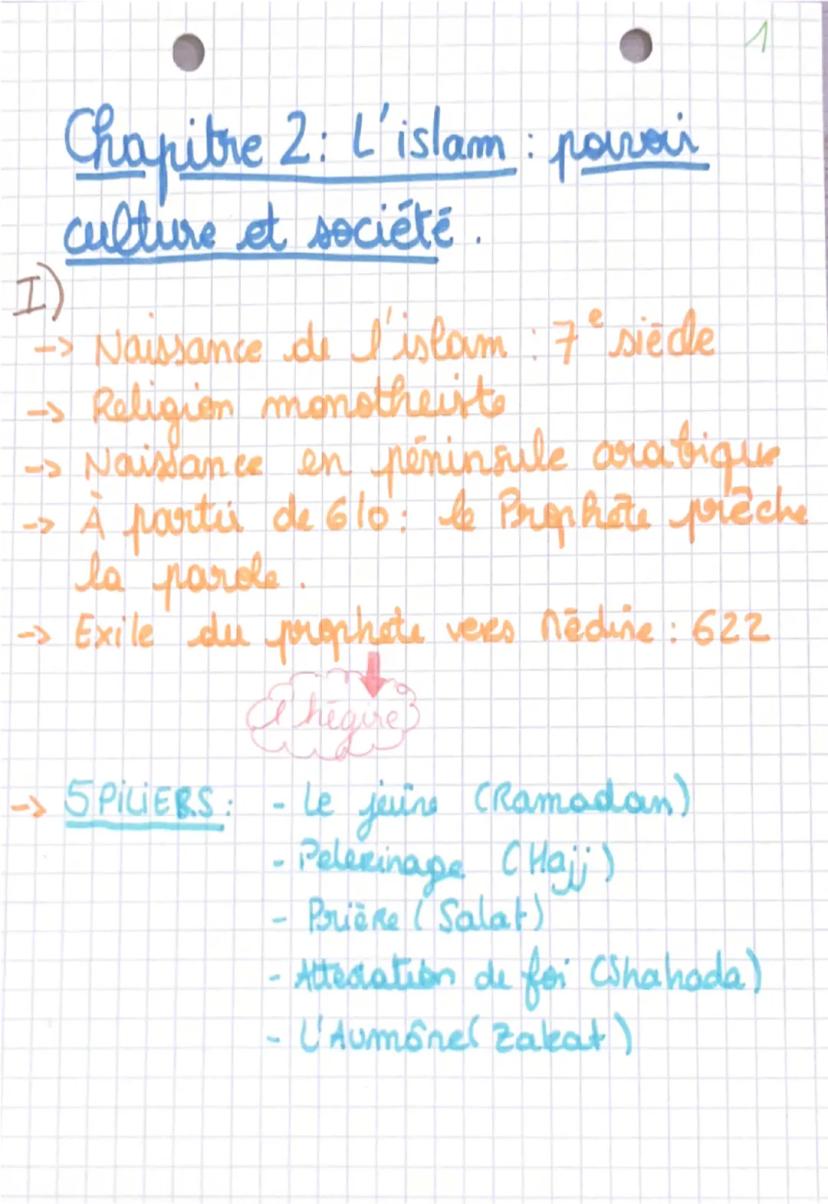 1
Chapitre 2: L'islam : pouvoir
culture et société.
I)
-> Naissance de l'islam : 7e siècle
-> Religion monotheiste
-> Naissance en péninsule arabique
-> À partir de 610: le Prophète prêche
la parole.
-> Exile du prophete vers Médine : 622
l'hégire
-> 5 PILIERS: - Le jeûne (Ramadan)
- Pelerinage (Hajj)
- Prière (Salat)
- Attestation de foi (Shahada)
- L'Aumône (Zakat)